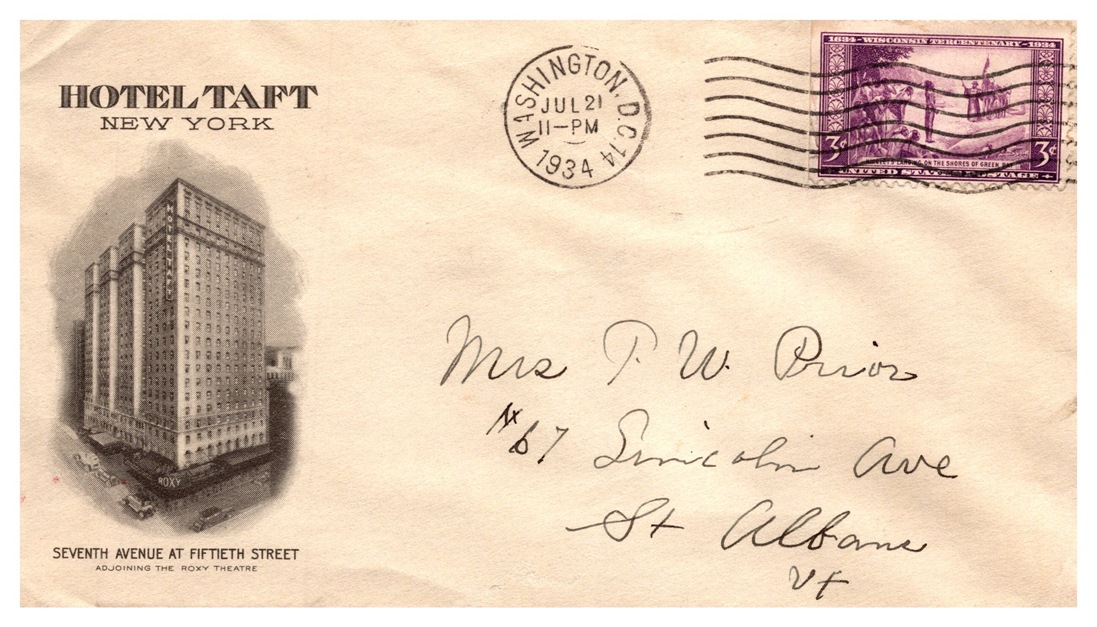 HOTEL TAFT
NEW YORK
HOTEL TAFT
ROXY
SEVENTH AVENUE AT FIFTIETH STREET
ADJOINING THE ROXY THEATRE
WASHINGTON, D.C. 14
JUL 21
11-PM
1934
1634-WISCONSIN TERCENTENARY-1934
3¢ 3¢
LANDING ON THE SHORES OF GREEN BAY
UNITED STATES POSTAGE
Mrs T. W. Prior
# 67 Lincoln Ave
St Albans
Vt